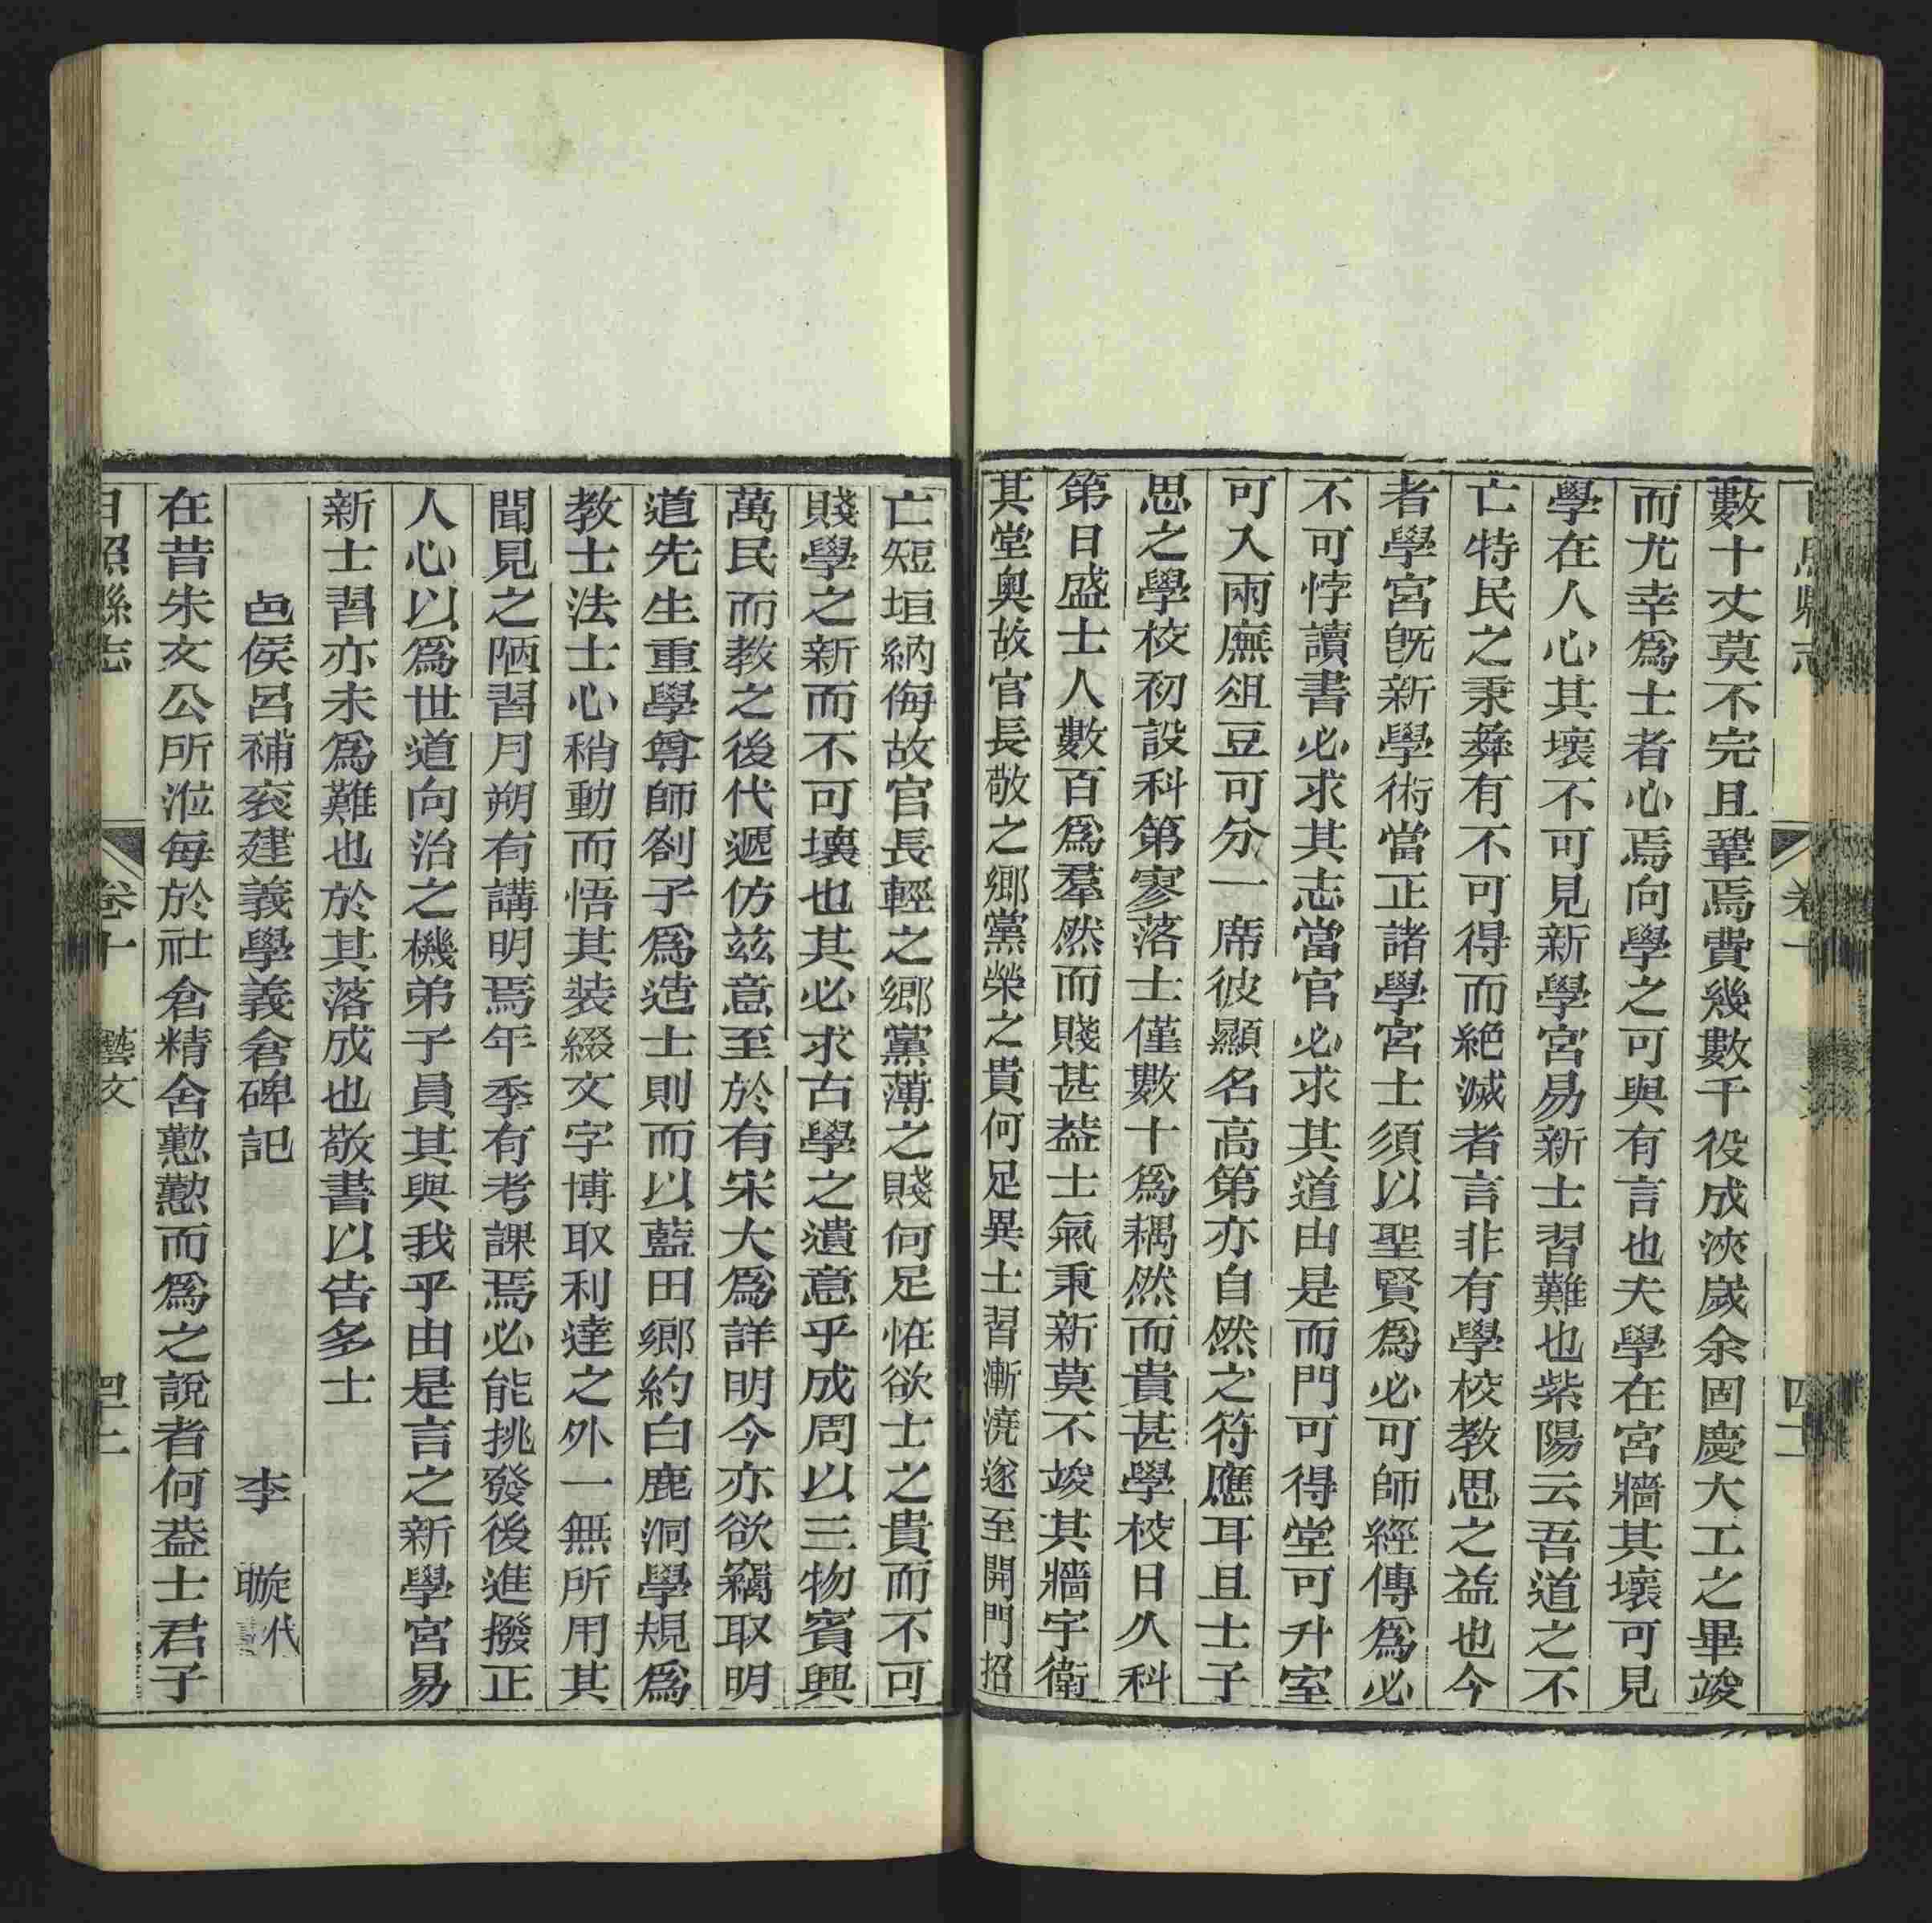 日照縣志 卷十 藝文 四十二
數十丈莫不完且鞏焉費幾數千役成浹歲余固慶大工之畢竣
而尤幸爲士者心焉向學之可與有言也夫學在宮牆其壞可見
學在人心其壞不可見新學宮易新士習難也紫陽云吾道之不
亡特民之秉彝有不可得而絶滅者言非有學校教思之益也今
者學宮旣新學術當正諸學宮士須以聖賢爲必可師經傳爲必
不可悖讀書必求其志當官必求其道由是而門可得堂可升室
可入兩廡俎豆可分一席彼顯名高第亦自然之符應耳且士子
思之學校初設科第寥落士僅數十爲耦然而貴甚學校日久科
第日盛士人數百爲羣然而賤甚葢士氣秉新莫不竣其牆宇衛
其堂奥故官長敬之鄉黨榮之貴何足異士習漸澆遂至開門招
亡短垣納侮故官長輕之鄉黨薄之賤何足怪欲士之貴而不可
賤學之新而不可壞也其必求古學之遺意乎成周以三物賓興
萬民而教之後代遞仿兹意至於有宋大爲詳明今亦欲竊取明
道先生重學尊師劄子爲造士則而以藍田鄉約白鹿洞學規爲
教士法士心稍動而悟其裝綴文字博取利達之外一無所用其
聞見之陋習月朔有講明焉年季有考課焉必能挑發後進撥正
人心以爲世道向治之機弟子員其與我乎由是言之新學宮易
新士習亦未爲難也於其落成也敬書以告多士
邑侯呂補袞建義學義倉碑記 李 㬎代
在昔朱文公所涖每於社倉精舍懃懃而爲之說者何葢士君子
日照縣志 卷十 藝文 四十二